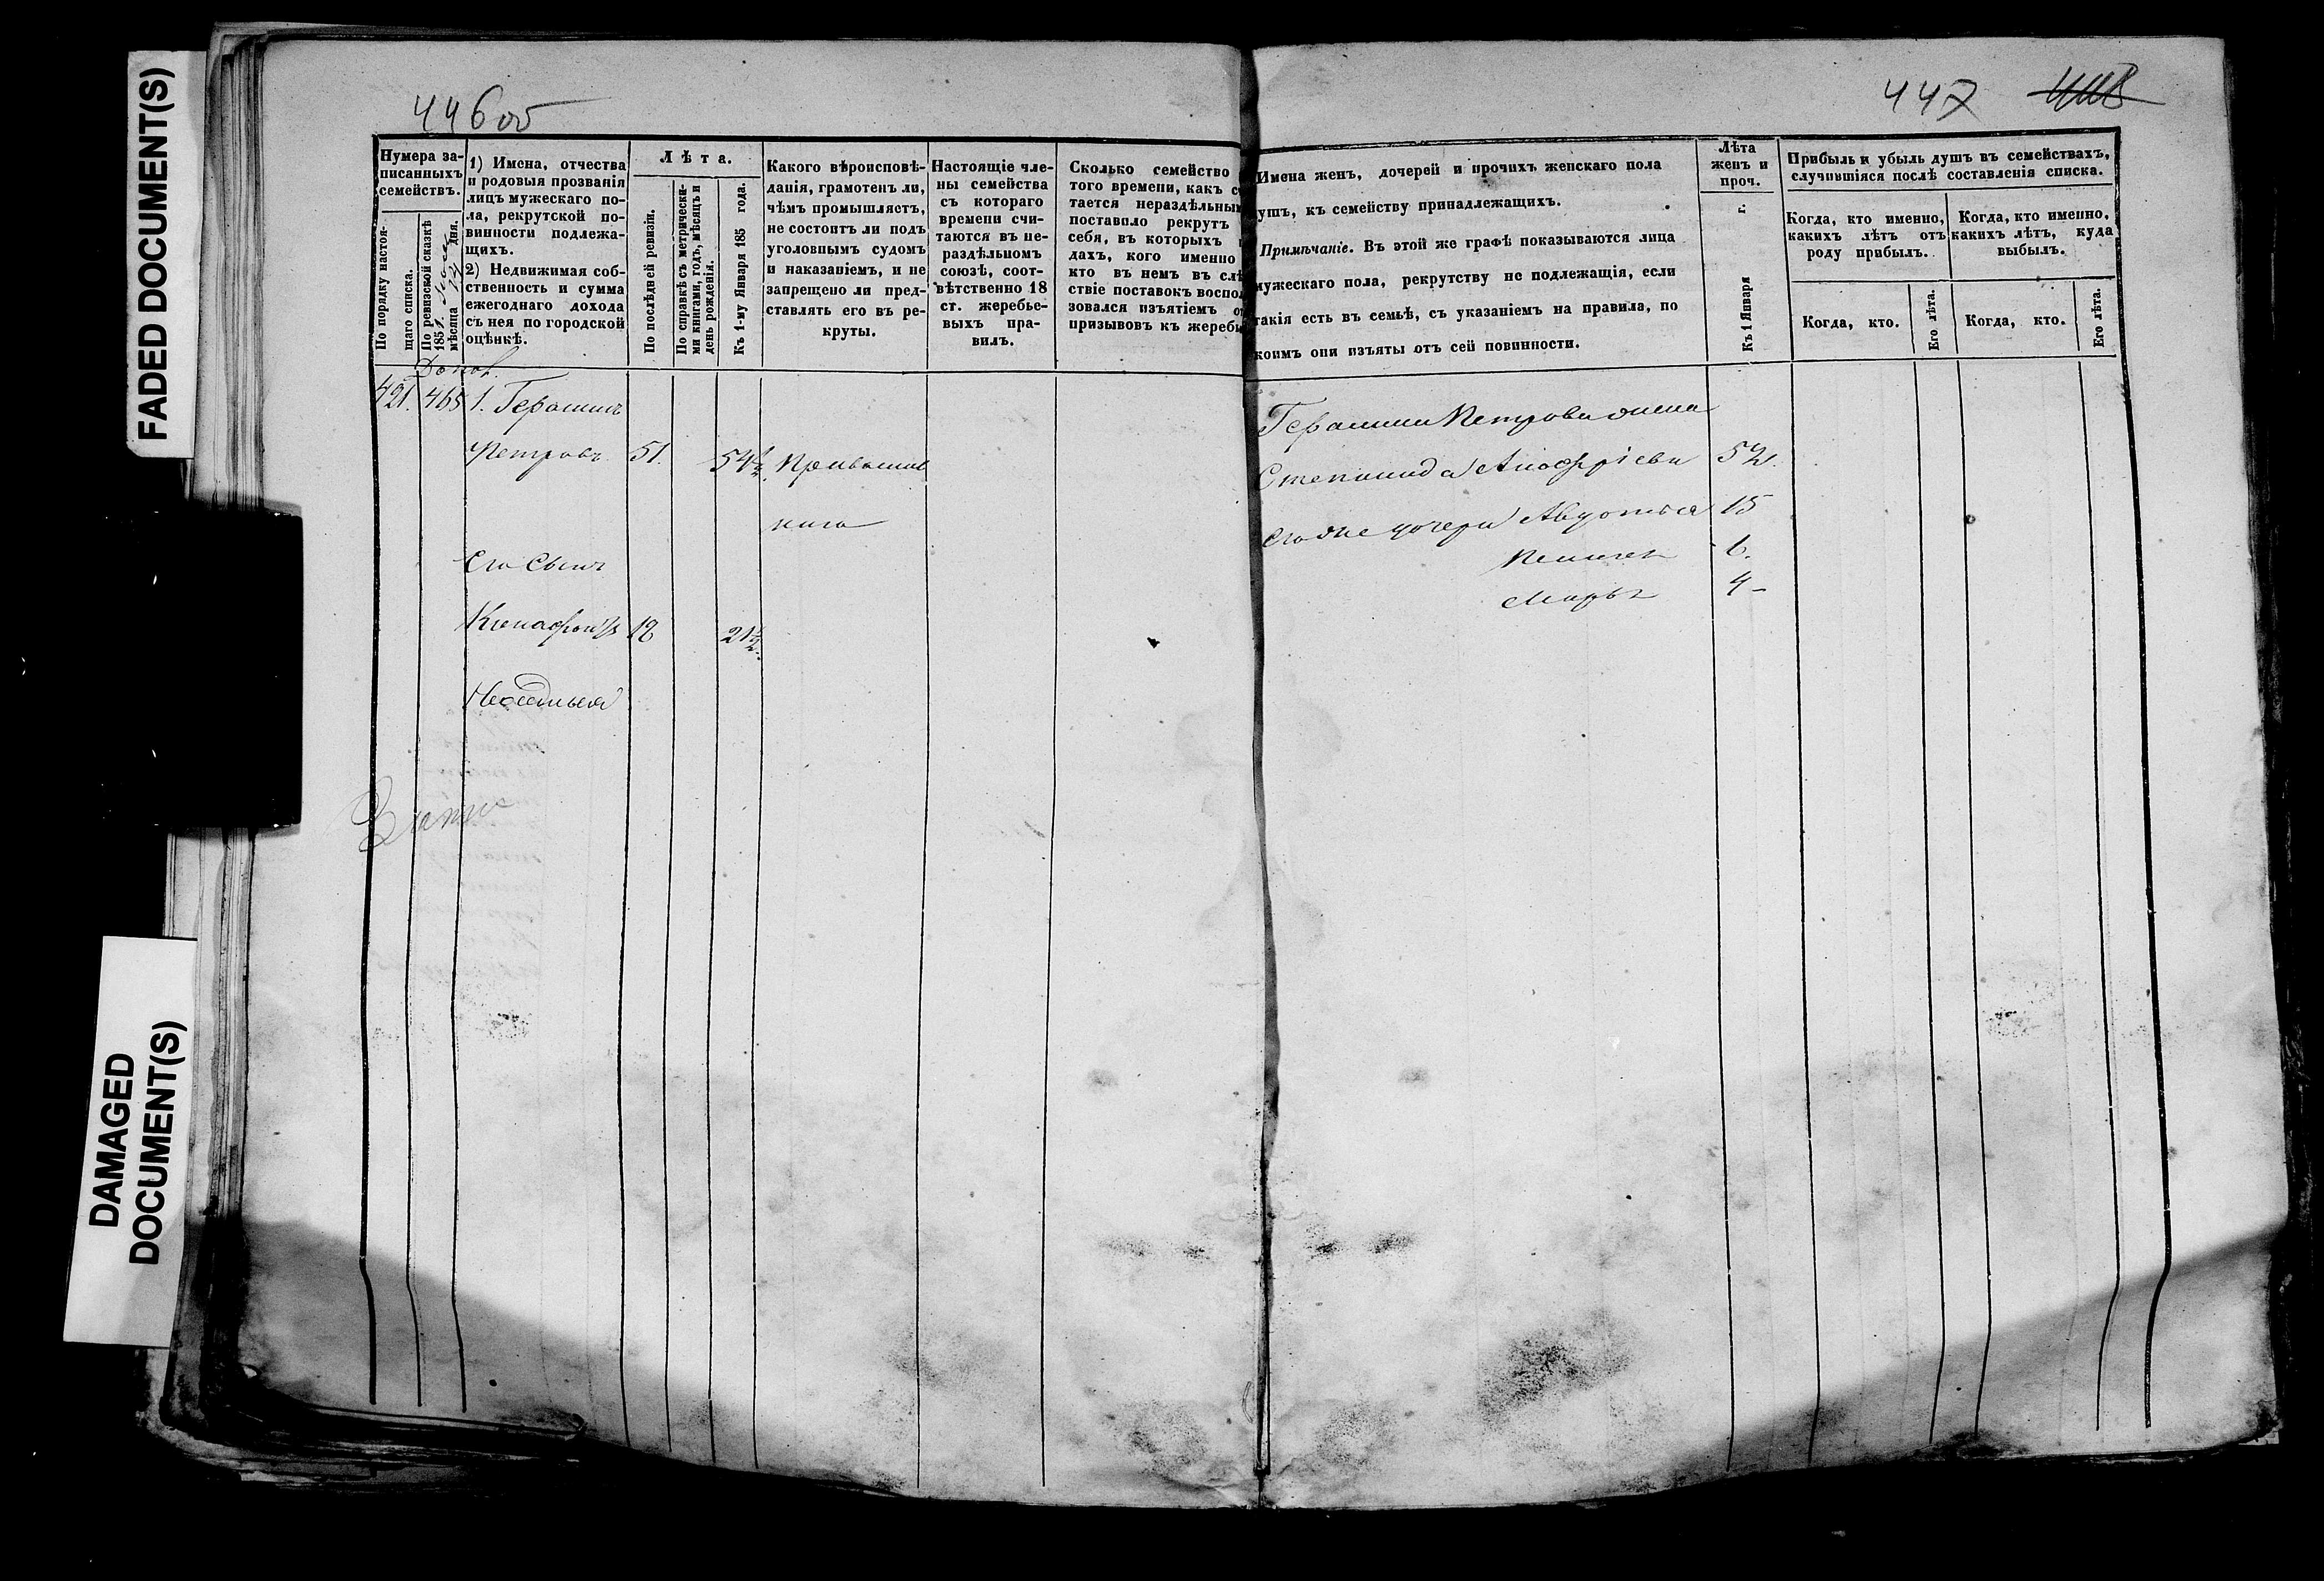 FADED DOCUMENT(S)
DAMAGED
DOCUMENT(S)
446об
Нумера за-
писанныхъ
семействъ.
По порядку настоя-
щаго списка.
По ревизской сказкѣ
1851.
мѣсяца дня.
1) Имена, отчества
и родовыя прозванія
лицъ мужескаго по-
ла, рекрутской по-
винности подлежа-
щихъ.
2) Недвижимая соб-
ственность и сумма
ежегоднаго дохода
съ нея по городской
оцѣнкѣ.
Лѣта.
По послѣдней ревизіи.
По справкѣ съ метрически-
ми книгами, годъ, мѣсяцъ и
день рожденія.
Къ 1-му Января 185 года.
Какого вѣроисповѣ-
данія, грамотенъ ли,
чѣмъ промышляетъ,
не состоитъ ли подъ
уголовнымъ судомъ
и наказаніемъ, и не
запрещено ли пред-
ставлять его въ ре-
круты.
Настоящіе чле-
ны семейства
съ котораго
времени счи-
таются въ не-
раздѣльномъ
союзѣ, соот-
вѣтственно 18
ст. жеребье-
выхъ пра-
вилъ.
Сколько семейство
того времени, какъ с
тается нераздѣльным
поставило рекрутъ
себя, въ которыхъ
дахъ, кого именно
кто въ немъ въ слѣ
ствіе поставокъ воспол
зовался изъятіемъ о
призывовъ къ жеребь
421. 465 1. Герасимъ
Петровъ 51. 54½
Его Сынъ
18 21½
447
Имена женъ, дочерей и прочихъ женскаго пола
ушъ, къ семейству принадлежащихъ.
Примѣчаніе. Въ этой же графѣ показываются лица
мужескаго пола, рекрутству не подлежащія, если
такія есть въ семьѣ, съ указаніемъ на правила, по
коимъ они изъяты отъ сей повинности.
Лѣта
женъ и
проч.
Къ 1 Января г.
Прибыль и убыль душъ въ семействахъ,
случившіяся послѣ составленія списка.
Когда, кто именно,
какихъ лѣтъ отъ
роду прибылъ.
Когда, кто именно,
какихъ лѣтъ, куда
выбылъ.
Когда, кто.
Его лѣта.
Когда, кто.
Его лѣта.
Герасима Петрова жена
Степанида 52.
его же дочери Авдотья 15
6.
Марья 4